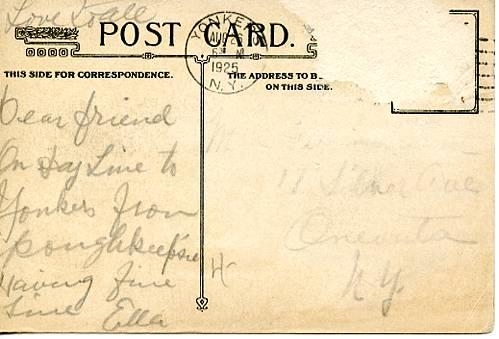 Love to all
POST CARD.
YONKERS
AUG 25
1925
N.Y.
THIS SIDE FOR CORRESPONDENCE.
THE ADDRESS TO B
ON THIS SIDE.
Dear friend
On Day Line to
Yonkers from
poughkeepsie
Having fine
time Ella
Silver Ave
Oneonta
N.Y.